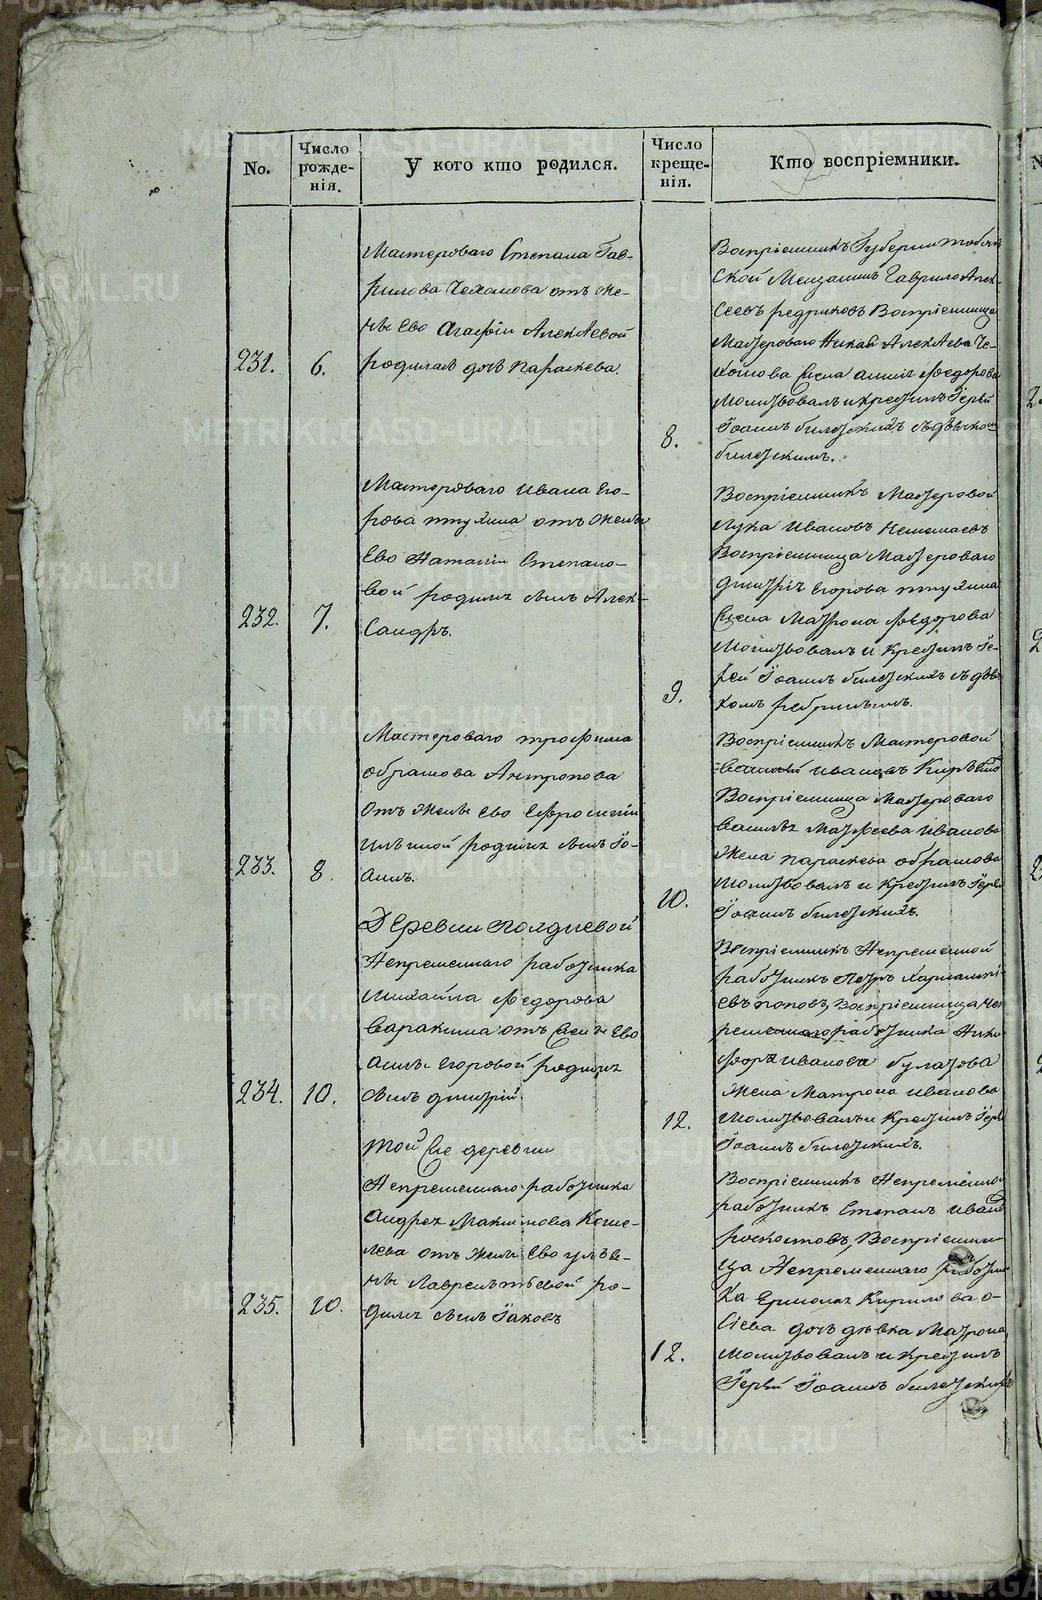 No.
Число рожде-нія.
У кого кто родился.
Число креще-нія.
Кто воспріемники.
231.
6.
Мастероваго Степана Гав-
рилова Чехомова отъ же-
ны Ево Агафіи Алексѣевой
родилась дочь Параскева.
8.
Воспріемникъ Губерніи Тоболь
ской Мещанинъ Гаврило Алек-
сеевъ Воспріемница
Мастероваго Алексѣева Че-
хомова жена Анна Федорова
Молитвовалъ и крестилъ Іерей
Іоаннъ
232.
7.
Мастероваго Ивана Его-
рова Птухина отъ жены
Ево Наталіи Степано-
вой родился сынъ Алек-
сандръ.
9.
Воспріемникъ Мастеровой
Лука Ивановъ
Воспріемница Мастероваго
Дмитрія Егорова Птухина
жена Матрона Федорова
Молитвовалъ и Крестилъ Іе-
рей Іоаннъ съ дья-
комъ
233.
8.
Мастероваго Трофима
Обрамова Антропова
отъ жены Ево Ефросиніи
Ильиной родился сынъ Іо-
аннъ.
10.
Воспріемникъ Мастеровой
Ивановъ
Воспріемница Мастероваго
Василья Матфеева Иванова
жена Параскева Обрамова
Молитвовалъ и Крестилъ Іерей
Іоаннъ
234.
10.
Деревни Полдневой
Непременнаго работника
Михайла Федорова
Варакина отъ жены Ево
Анны Егоровой родился
сынъ Дмитрій.
12.
Воспріемникъ Непременной
работникъ Петръ
Поповъ, Воспріемница Не
пременнаго работника Ники
фора Иванова Булатова
жена Матрона Иванова
Молитвовалъ и Крестилъ Іерей
Іоаннъ
235.
10.
Той же деревни
Непременнаго работника
Андрея Максимова Коше-
лева отъ жены Ево Улья-
ны Лаврентьевой ро-
дился сынъ Іаковъ
12.
Воспріемникъ Непременной
работникъ Степанъ Иванов
Воспріемни-
ца Непременнаго работни
ка Ермолая Кирилова
дочь дѣвка Матрона
Молитвовалъ и Крестилъ
Іерей Іоаннъ
METRIKI.GASO-URAL.RU